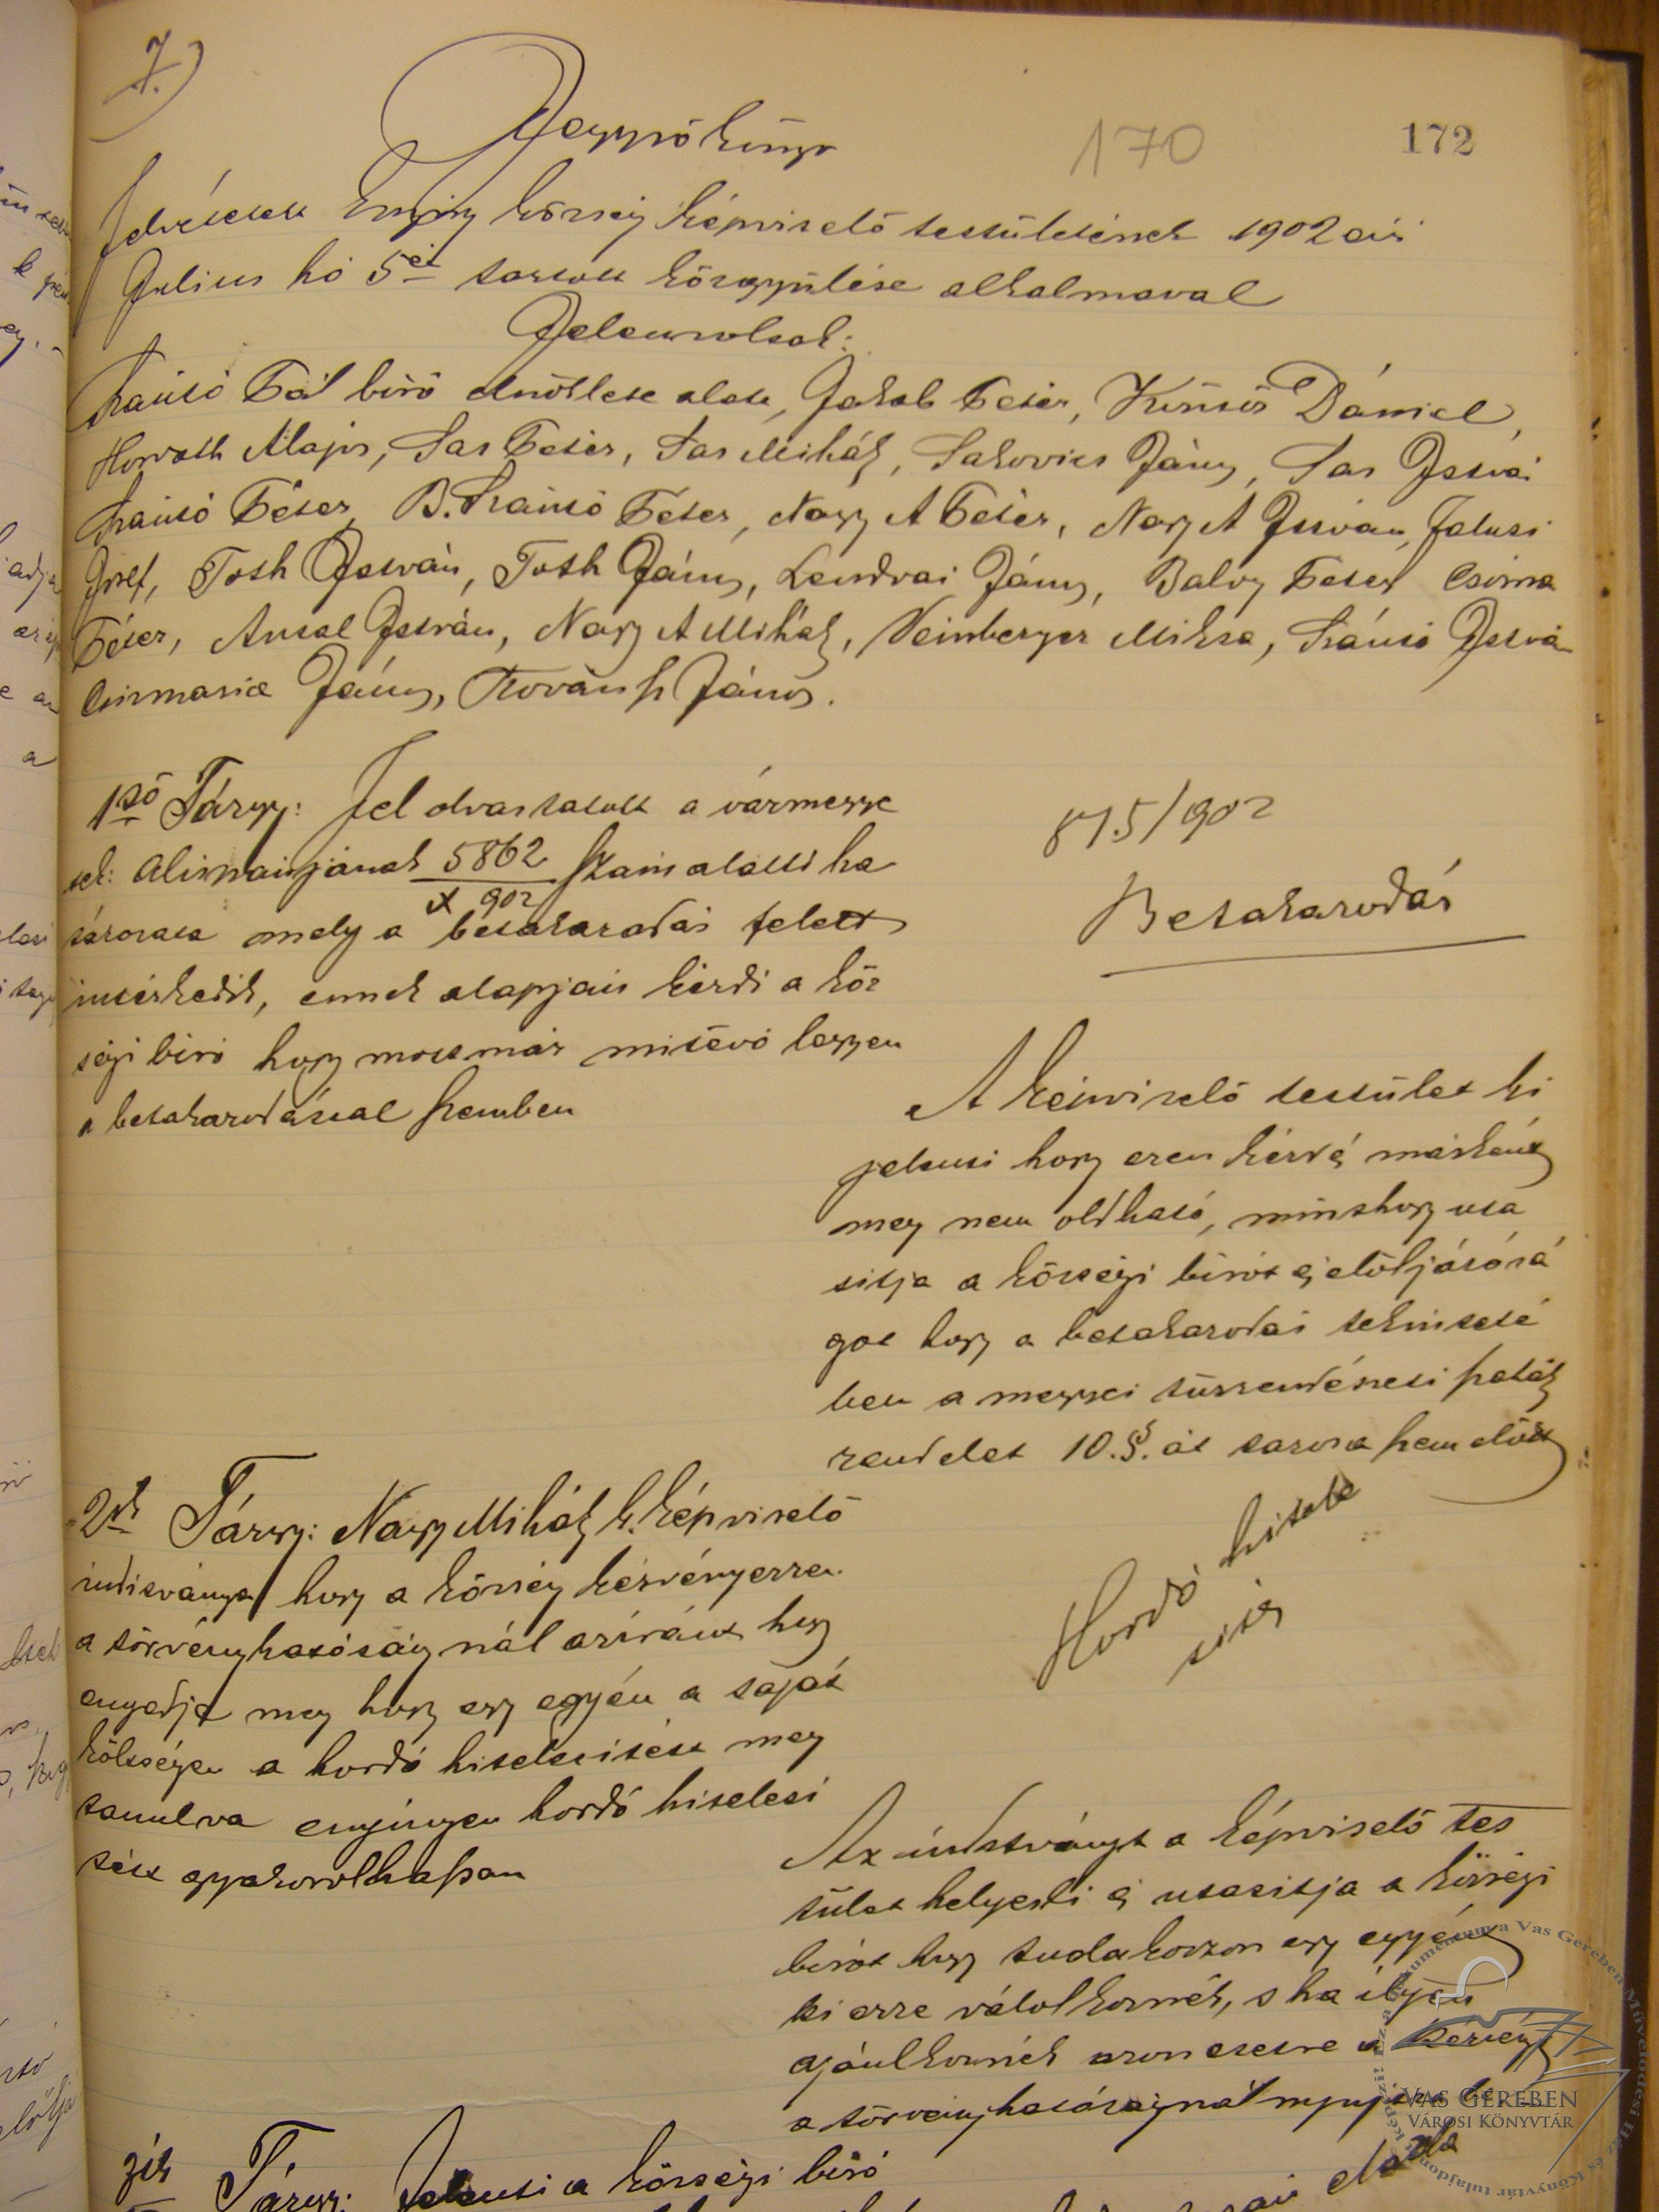 7.)
Jegyzőkönyv
170
172
Felvétetett Enying község képviselő testületének 1902 évi
Julius hó 5én tartott közgyülése alkalmával
Jelenvoltak:
Pál biró elnöklete alatt, Jakab Péter, Körösi Dániel,
Horvath Alajos, Sas Péter, Sas Mihály, Sakovics János, Sas Istvá
Péter, B. Péter, Nagy A Péter, Nagy A Istvan,
József, Toth István, Toth János, Lendvai János, Balog Peter Csizma
Péter, Antal István, Nagy A Mihály, Veinberger Miksa, Istvá
Csizmazia János, Kováts János.
1ső Tárgy: Fel olvastatott a vármegye
tek: Alispánjának 5862/902 szám alatti ha
tározata mely a betakarodás felett
intézkedik, ennek alapján kérdi a köz
ségi biró hogy mostmár mitévő legyen
a betakarodással szemben
875/902
Betakarodás
A képviselő testület ki
jelenti hogy ezen kérdés másként
meg nem oldható, minthogy uta
sitja a községi birót és előljárósá
got hogy a betakarodás tekinteté
ben a megyei tüzrendészeti szabály
rendelet 10.§.át tartsa szem előtt
2ik Tárgy: Nagy Mihály k. képviselő
inditványa hogy a község kérvényezzen
a törvényhatóságnál aziránt hogy
engedje meg hogy egy egyén a saját
költségén a hordó hitelesitést meg
tanulva enyingen hordó hitelesi
tést gyakorolhasson
Hordó hitele
sités
Az inditványt a képviselő tes
tület helyesli és utasitja a községi
birót hogy tudakozzon egy egyént
ki erre válalkoznék, s ha ilyen
ajánlkoznék azon esetre a kérvényt
a törvenyhatóságnál
3ik Tárgy: Jelenti a községi biró
VAS GEREBEN
VÁROSI KÖNYVTÁR